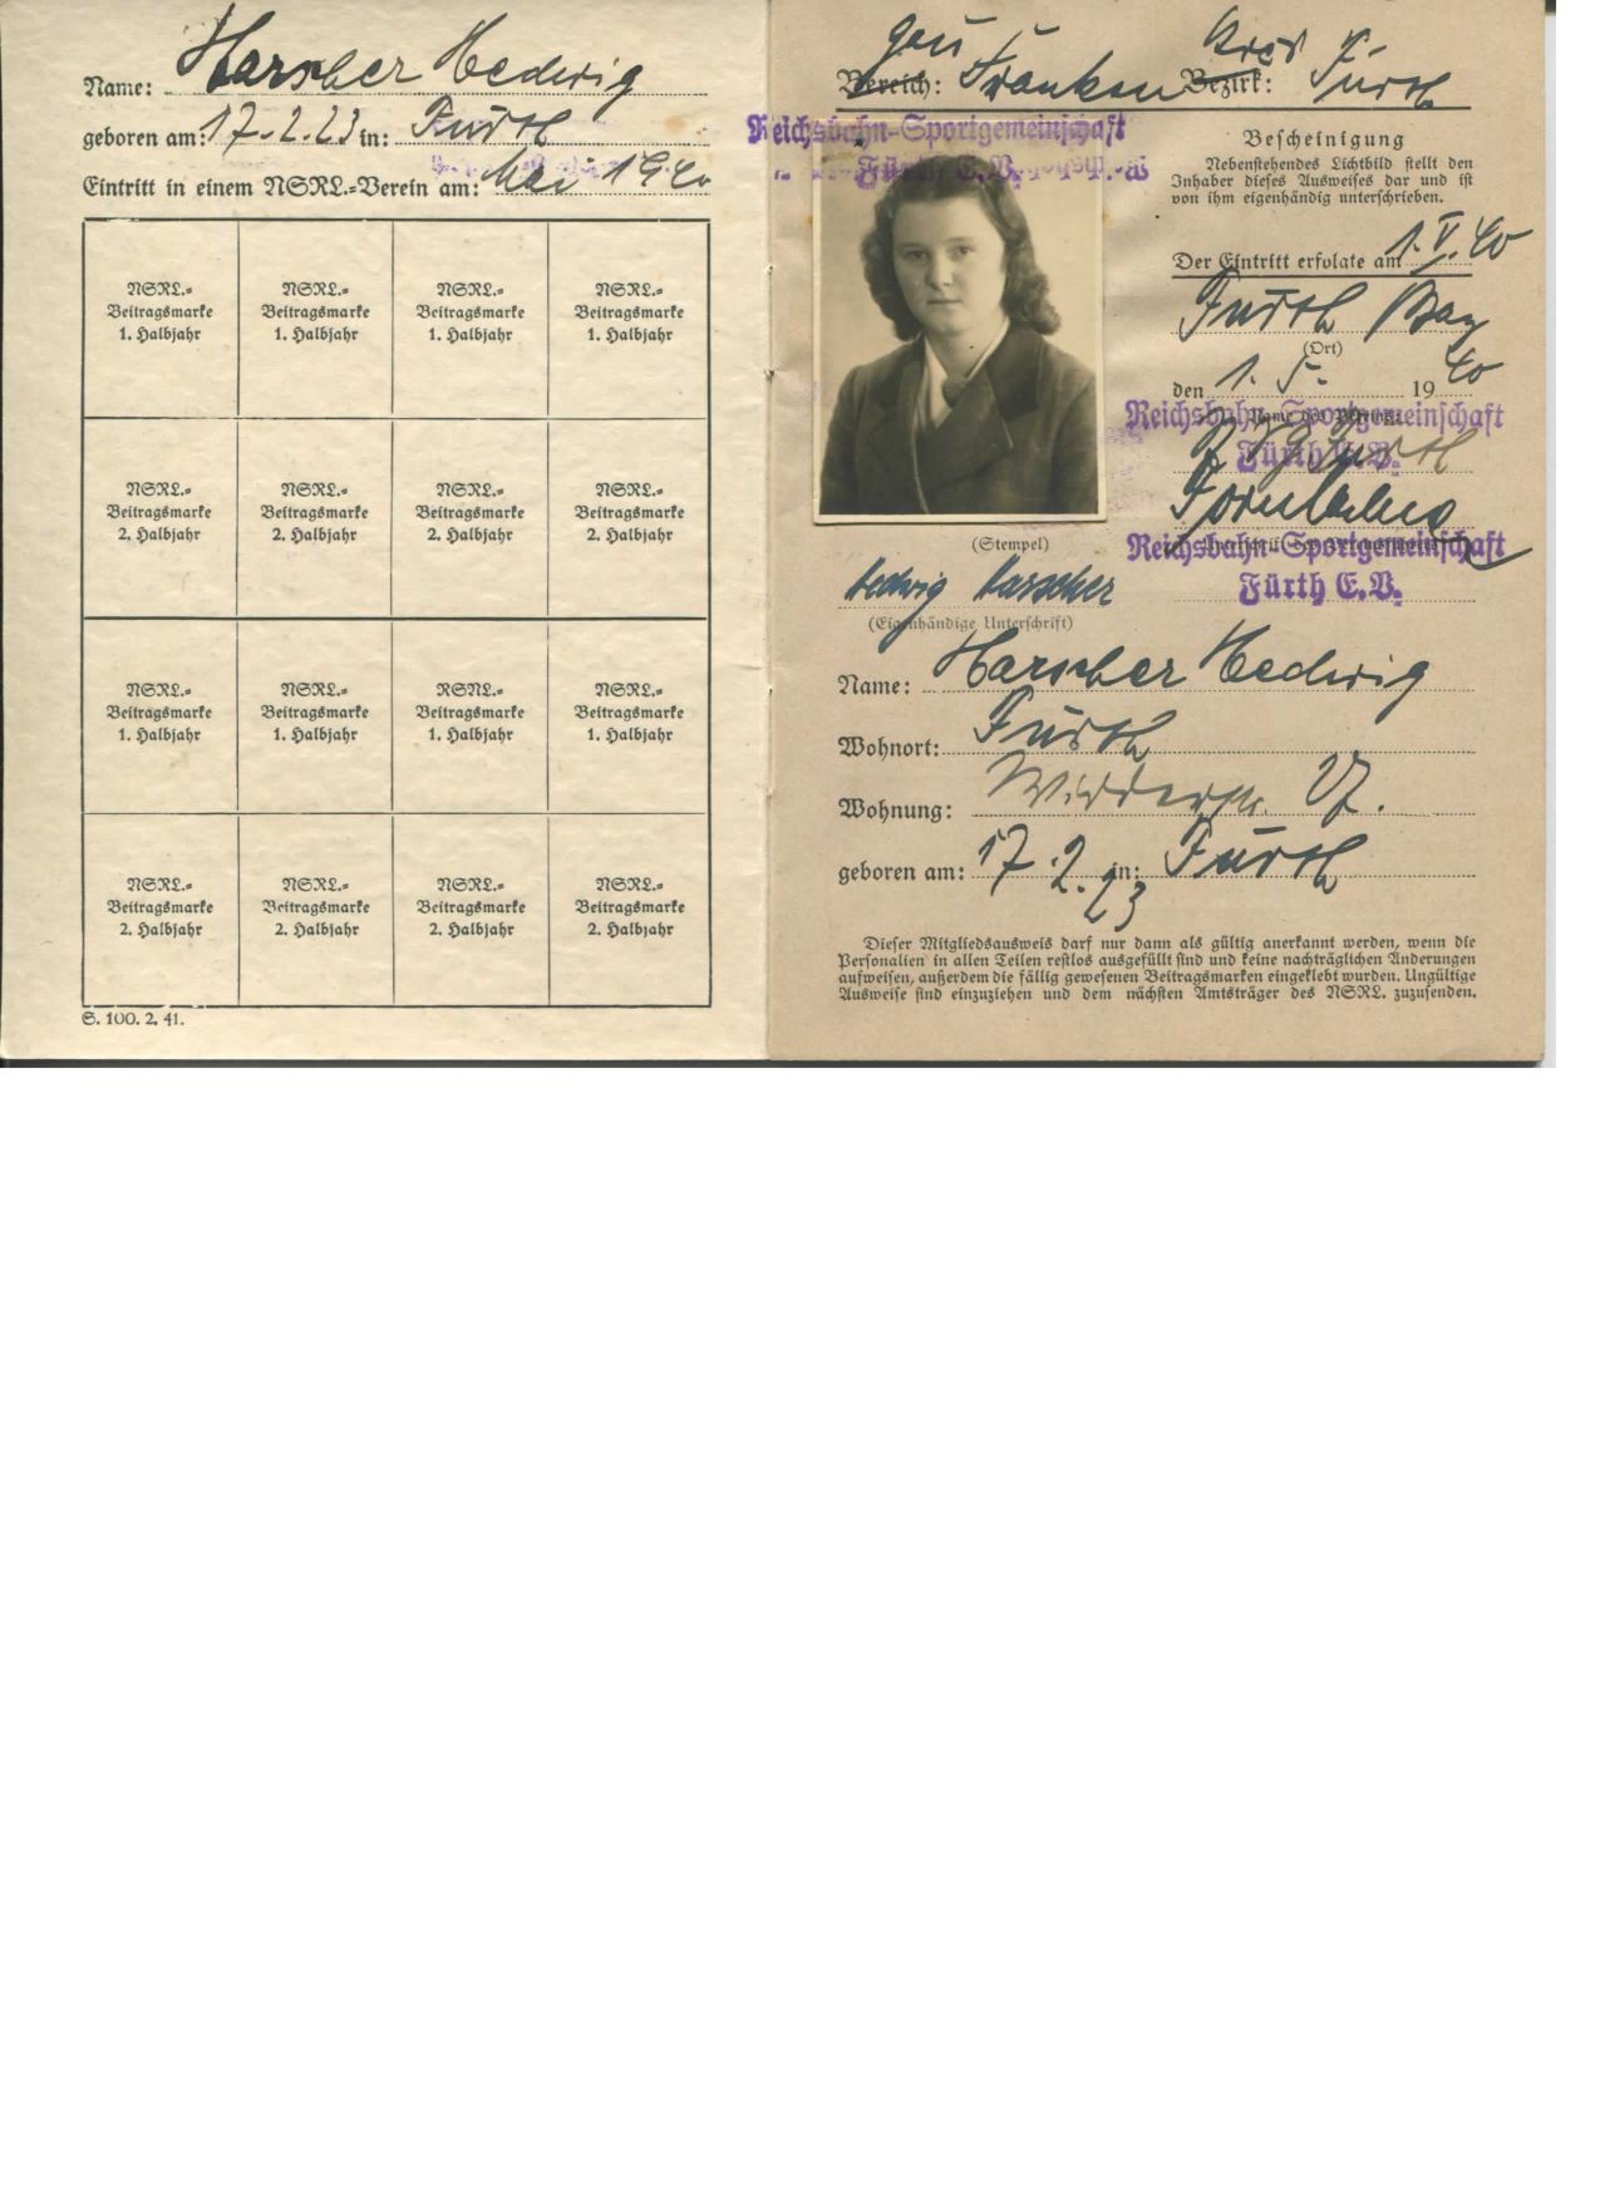 Name: Harscher Hedwig
geboren am: 17.2.23 in: Fürth
Eintritt in einem NSRL.=Verein am: Mai 1940
NSRL.= NSRL.= NSRL.= NSRL.=
Beitragsmarke Beitragsmarke Beitragsmarke Beitragsmarke
1. Halbjahr 1. Halbjahr 1. Halbjahr 1. Halbjahr
NSRL.= NSRL.= NSRL.= NSRL.=
Beitragsmarke Beitragsmarke Beitragsmarke Beitragsmarke
2. Halbjahr 2. Halbjahr 2. Halbjahr 2. Halbjahr
NSRL.= NSRL.= RSNL.= NSRL.=
Beitragsmarke Beitragsmarke Beitragsmarke Beitragsmarke
1. Halbjahr 1. Halbjahr 1. Halbjahr 1. Halbjahr
NSRL.= NSRL.= NSRL.= NSRL.=
Beitragsmarke Beitragsmarke Beitragsmarke Beitragsmarke
2. Halbjahr 2. Halbjahr 2. Halbjahr 2. Halbjahr
S. 100. 2. 41.
Gau Kreis
Bereich: Franken Bezirk: Fürth
Reichsbahn-Sportgemeinschaft
Fürth E.V.
Bescheinigung
Nebenstehendes Lichtbild stellt den
Inhaber dieses Ausweises dar und ist
von ihm eigenhändig unterschrieben.
Der Eintritt erfolgte am 1. V. 40
Fürth Bay
(Ort)
den 1. 5. 1940
Reichsbahn-Sportgemeinschaft
Name des Vereins:
Fürth E.V.
R S G Fürth
(Stempel)
Reichsbahn-Sportgemeinschaft
Fürth E.V.
Hedwig Harscher
(Eigenhändige Unterschrift)
Name: Harscher Hedwig
Wohnort: Fürth
Wohnung: 27.
geboren am: 17 2. 23 in: Fürth
Dieser Mitgliedsausweis darf nur dann als gültig anerkannt werden, wenn die
Personalien in allen Teilen restlos ausgefüllt sind und keine nachträglichen Änderungen
aufweisen, außerdem die fällig gewesenen Beitragsmarken eingeklebt wurden. Ungültige
Ausweise sind einzuziehen und dem nächsten Amtsträger des NSRL. zuzusenden.